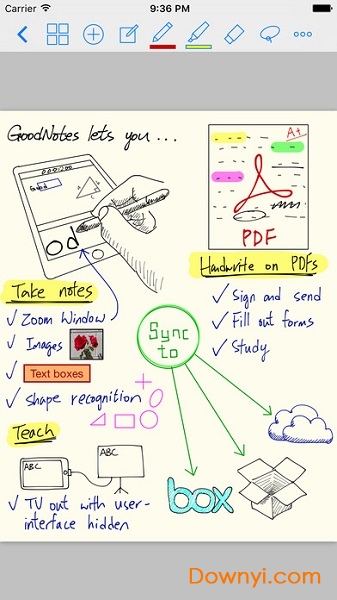 Carrier
9:36 PM
GoodNotes lets you ...
Good
od
A+
PDF
Take notes
Zoom Window
Images
Text boxes
Shape recognition
Handwrite on PDFs
Sign and send
Fill out forms
Study
Sync
to
Teach
ABC
ABC
TV out with user-
interface hidden
box
Downyi.com